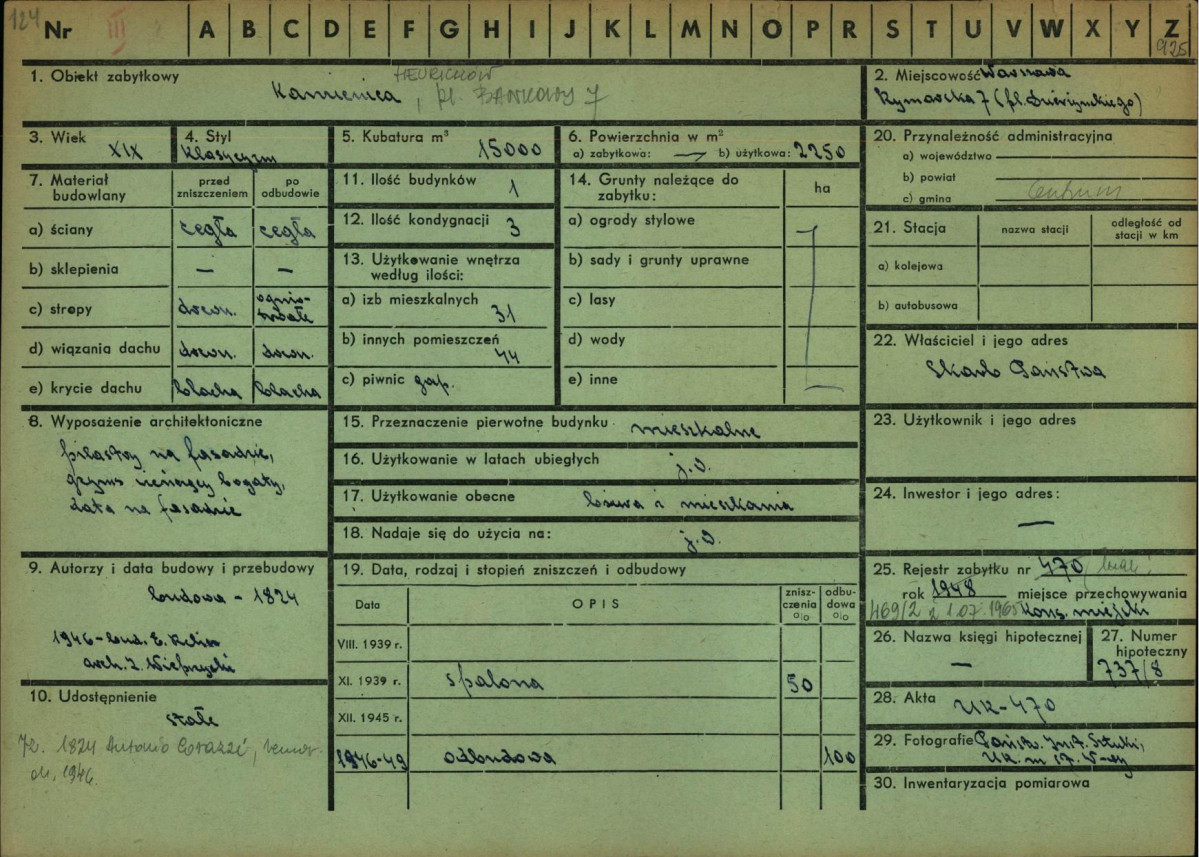 124
Nr III A B C D E F G H I J K L M N O P R S T U V W X Y Z
925
1. Obiekt zabytkowy
HEURICHÓW
Kamienica, pl. BANKOWY 7
2. Miejscowość Warszawa
Rymarska 7 (pl. Dzierżyńskiego)
3. Wiek
XIX
4. Styl
Klasycyzm
5. Kubatura m³
15000
6. Powierzchnia w m²
a) zabytkowa: — b) użytkowa: 2250
7. Materiał budowlany
przed zniszczeniem
po odbudowie
a) ściany cegła cegła
b) sklepienia — —
c) stropy drewn. ognio-
trwałe
d) wiązania dachu drewn. drewn.
e) krycie dachu blacha blacha
8. Wyposażenie architektoniczne
pilastry na fasadzie,
gzyms wieńczący bogaty,
data na fasadzie
9. Autorzy i data budowy i przebudowy
budowa - 1824
1946 - bud. E.
arch. Z.
10. Udostępnienie
stałe
1824 Antonio Corazzi,
1946.
11. Ilość budynków
1
12. Ilość kondygnacji 3
13. Użytkowanie wnętrza
według ilości:
a) izb mieszkalnych
31
b) innych pomieszczeń
44
c) piwnic
14. Grunty należące do
zabytku:
ha
a) ogrody stylowe
b) sady i grunty uprawne
c) lasy
d) wody
e) inne
15. Przeznaczenie pierwotne budynku mieszkalne
16. Użytkowanie w latach ubiegłych j.w.
17. Użytkowanie obecne biura i mieszkania
18. Nadaje się do użycia na: j.w.
19. Data, rodzaj i stopień zniszczeń i odbudowy
Data
OPIS
znisz-
czenia
o|o
odbu-
dowa
o|o
VIII. 1939 r.
XI. 1939 r. spalona 50
XII. 1945 r.
1946-49 odbudowa 100
20. Przynależność administracyjna
a) województwo
b) powiat
c) gmina Centrum
21. Stacja
nazwa stacji
odległość od
stacji w km
a) kolejowa
b) autobusowa
22. Właściciel i jego adres
Skarb Państwa
23. Użytkownik i jego adres
24. Inwestor i jego adres:
—
25. Rejestr zabytku nr 470
rok 1948 miejsce przechowywania
469/2 z 1.07.1965 Kons. miejski
26. Nazwa księgi hipotecznej
—
27. Numer
hipoteczny
737/8
28. Akta
UK-470
29. Fotografie Państw. Inst. Sztuki,
UK. m. st. W-wy
30. Inwentaryzacja pomiarowa